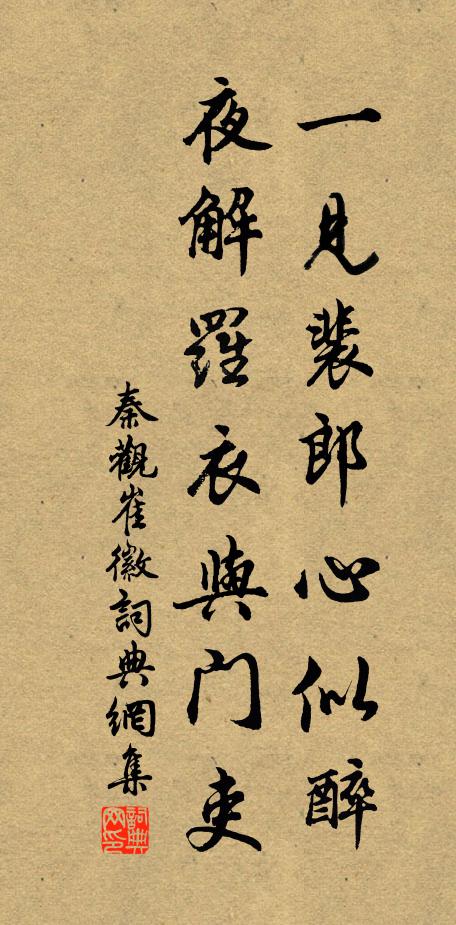 一見裴郎心似醉
夜解羅衣與门吏
秦觀崔徽詞典網集
詞典网印